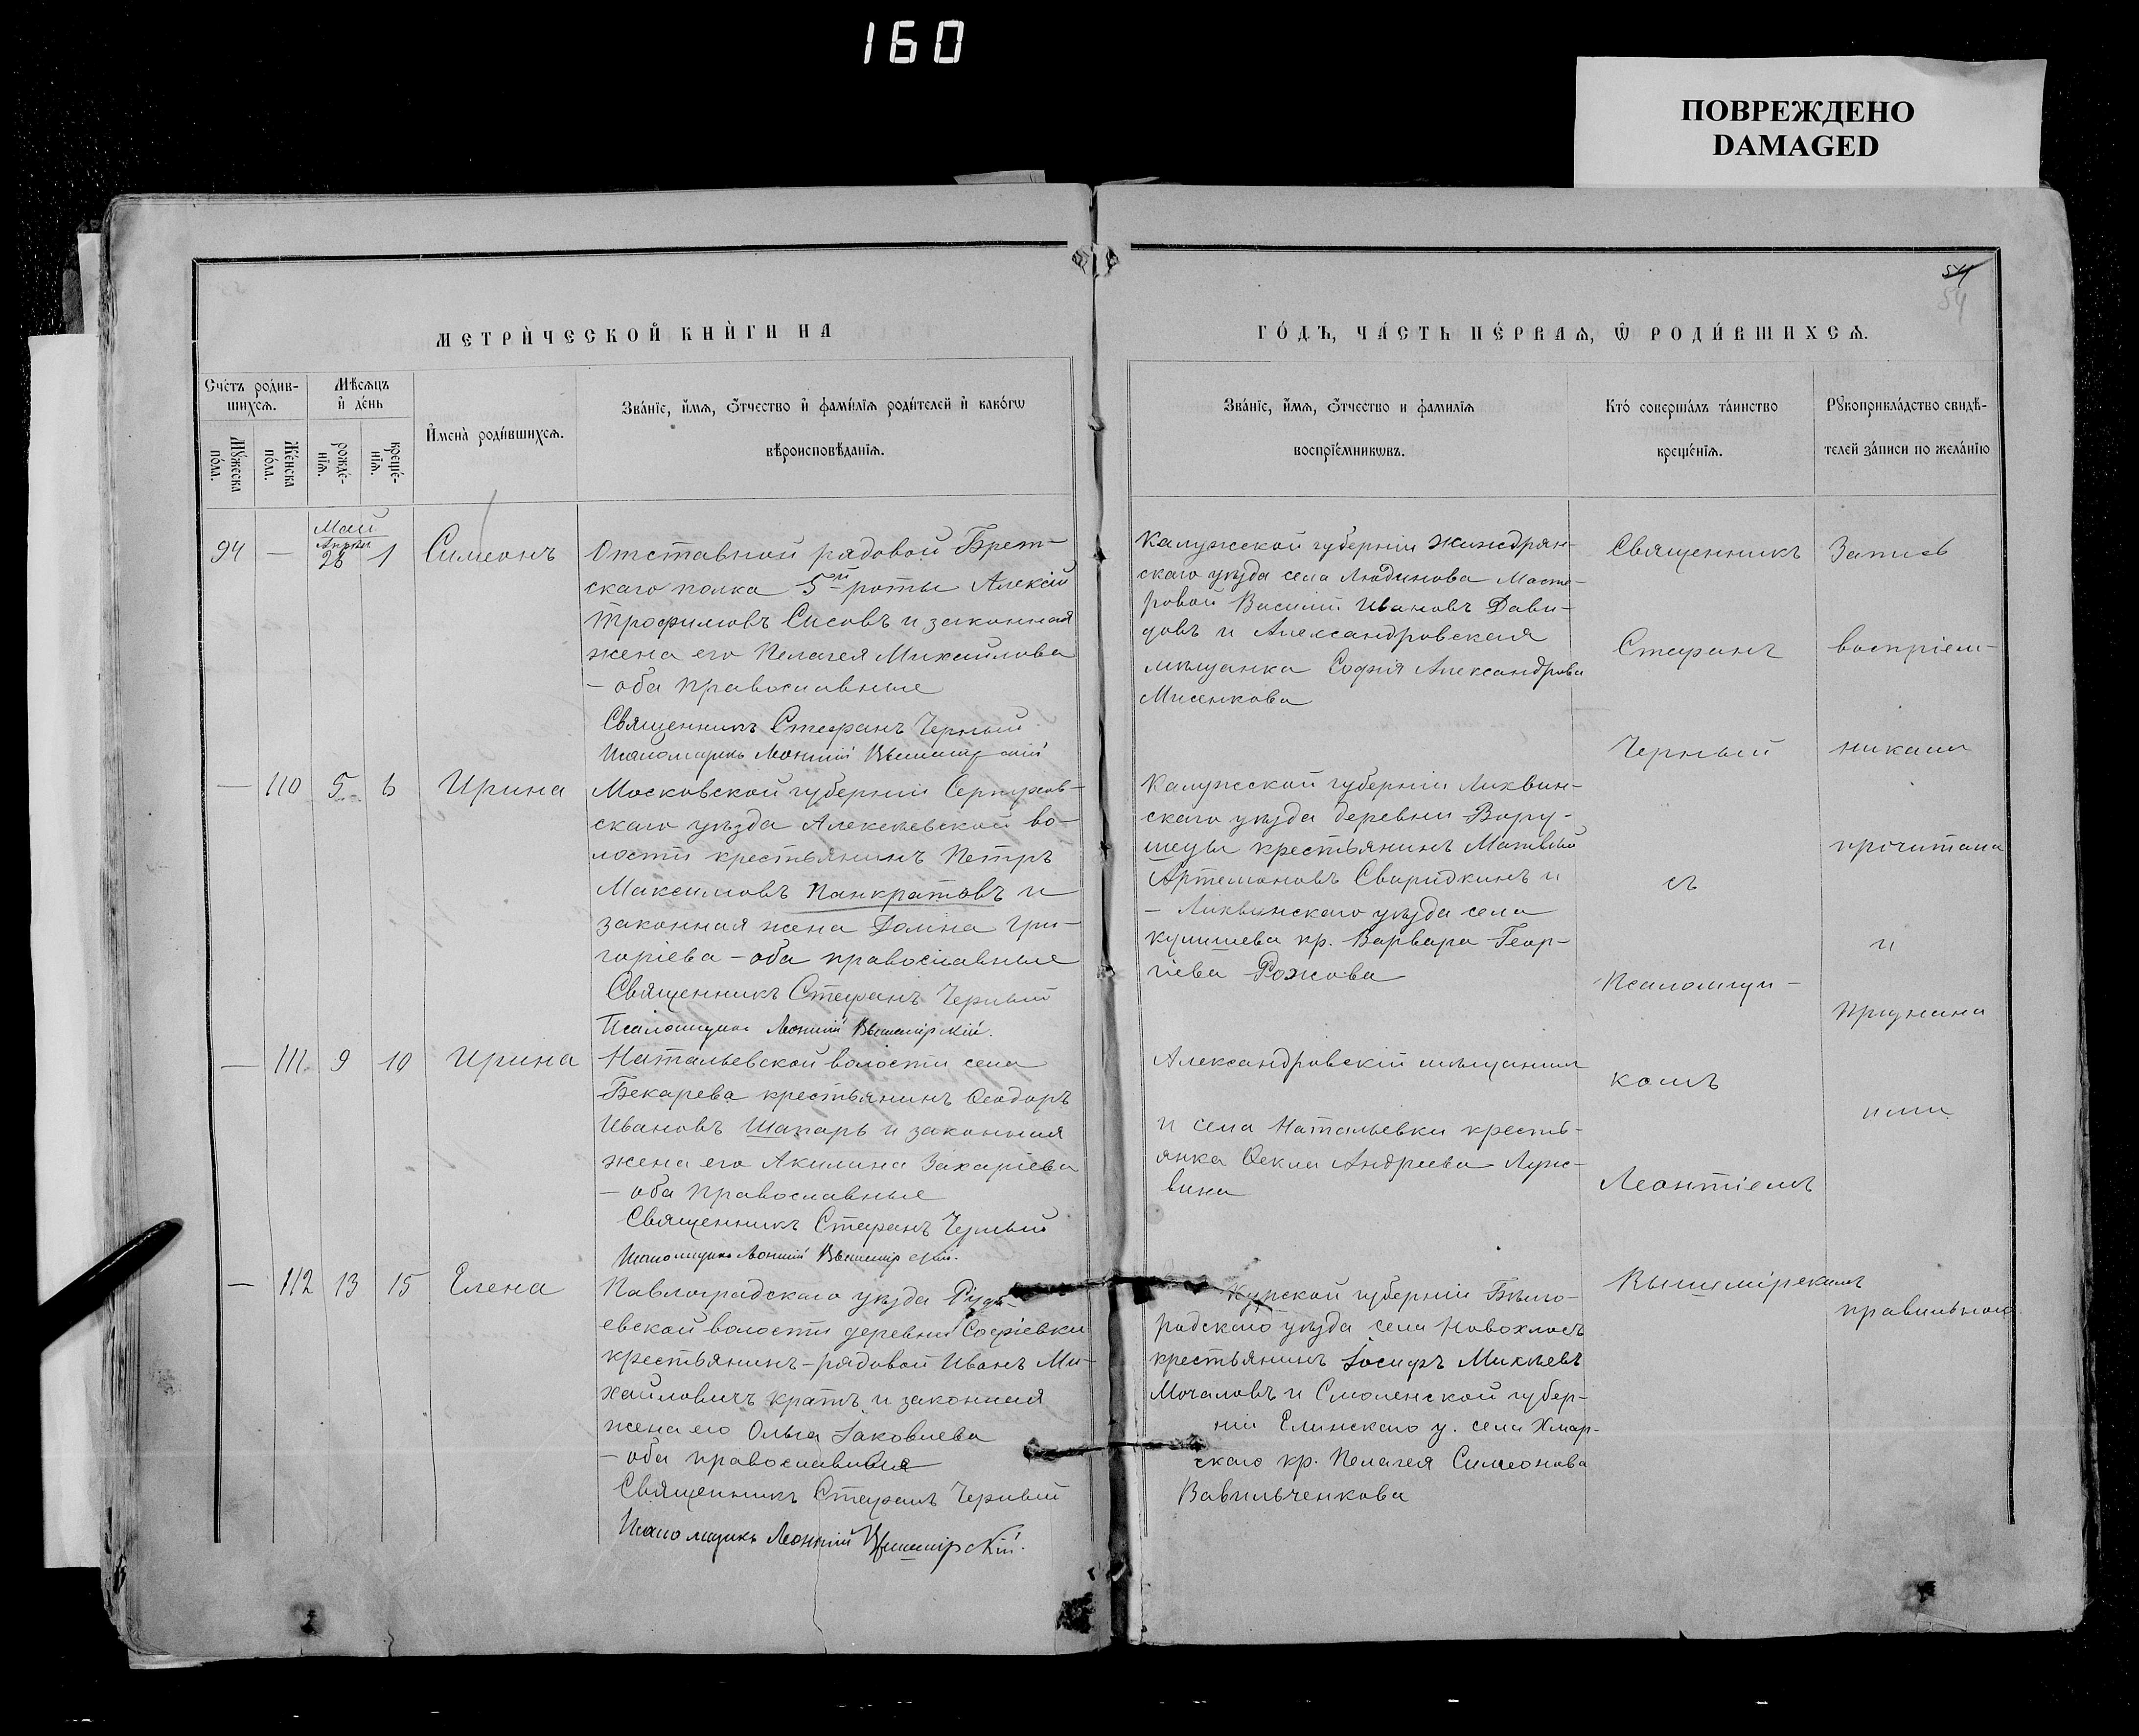 160
ПОВРЕЖДЕНО
DAMAGED
54
54
МЕТРИ́ЧЕСКОЙ КНИ́ГИ НА
ГО́ДЪ, ЧА́СТЬ ПЕ́РВАѦ, Ѿ РОДИ́ВШИХСѦ.
Сче́тъ роди́в-
шихсѧ.
Мꙋ́жеска по́ла.
Же́нска по́ла.
Мѣ́сѧцъ
и҆ де́нь
рожде́-
нїѧ.
креще́-
нїѧ.
И҆мена̀ роди́вшихсѧ.
Зва́нїе, и҆́мѧ, ѻ҆́тчество и҆ фами́лїѧ роди́телей и҆ како́гѡ
вѣроисповѣ́данїѧ.
Зва́нїе, и҆́мѧ, ѻ҆́тчество и фами́лїѧ
воспрїе́мникѡвъ.
Кто̀ соверша́лъ та́инство
креще́нїѧ.
Рꙋкоприкла́дство свидѣ́-
телей за́писи по жела́нїю
94 — Май Апрѣл. 28 1 Симеонъ
Отставной рядовой Брест-
скаго полка 5й роты Алексій
Трофимовъ Сисовъ и законная
жена его Пелагея Михайлова
— оба православные
Священникъ Стефанъ Черный
Псаломщикъ Леонтій Вышемірскій
Калужской губерніи Жиздрин-
скаго уѣзда села Людинова Масте-
ровой Василій Ивановъ Дави-
довъ и Александровская
мѣщанка Софія Александрова
Мисенкова
— 110 5 6 Ирина
Московской губерніи Серпухов-
скаго уѣзда Алексѣевской во-
лости крестьянинъ Петръ
Максимовъ Панкратовъ и
законная жена Домна Гри-
горіева — оба православные
Священникъ Стефанъ Черный
Псаломщикъ Леонтій Вышемірскій.
Калужской губерніи Лихвин-
скаго уѣзда деревни Вору-
шецы крестьянинъ Матвѣй
Артемоновъ Свиридкинъ и
— Лихвинскаго уѣзда села
Кулишева кр. Варвара Геор-
гіева Рожова
— 111. 9 10 Ирина
Натальевской волости села
Бекарева крестьянинъ Ѳеодоръ
Ивановъ Шапарь и законная
жена его Акилина Захаріева
— оба православные
Священникъ Стефанъ Черный
Псаломщикъ Леонтій Вышемірскій.
Александровскій мѣщанинъ
и села Натальевки кресть-
янка Ѳекла Андреева Луж-
вина
— 112 13 15 Елена
Павлоградскаго уѣзда
евской волости деревни Софіевки
крестьянинъ-рядовой Иванъ Ми-
хайловичъ Кратъ и законная
жена его Ольга Іаковлева
— оба православныя
Священникъ Стефанъ Черный
Псаломщикъ Леонтій Вышемірскій.
Курской губерніи Бѣлго-
родскаго уѣзда села
крестьянинъ Іосифъ Михѣевъ
Мочаловъ и Смоленской губер-
ніи Елинскаго у. села Хмар-
скаго кр. Пелагея Симеонова
Вавильченкова
Священникъ
Стефанъ
Черный
съ
Псаломщи-
комъ
Леонтіемъ
Вышемірскимъ
Запись
воспріем-
никами
прочитана
и
признана
ими
правильною